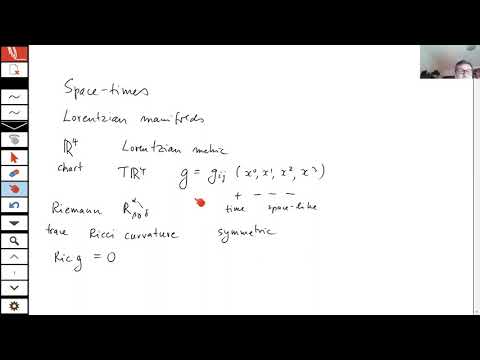 Space-times
Lorentzian manifolds
ℝ⁴ Lorentzian metric
chart Tℝ⁴ g = g_ij (x⁰, x¹, x², x³)
+ − − −
time space-like
Riemann R^α_βγδ
trace Ricci curvature symmetric
Ric g = 0